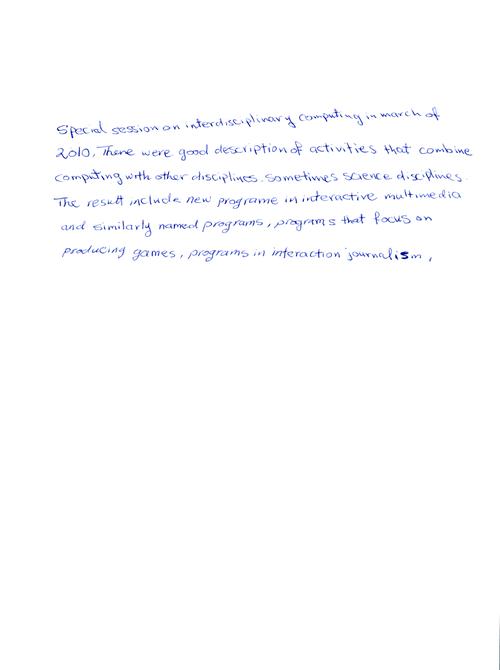 Special session on interdisciplinary computing in march of
2010. There were good description of activities that combine
computing with other disciplines. sometimes science disciplines.
The result include new programe in interactive multimedia
and similarly named programs, programs that focus on
producing games, programs in interaction journalism,